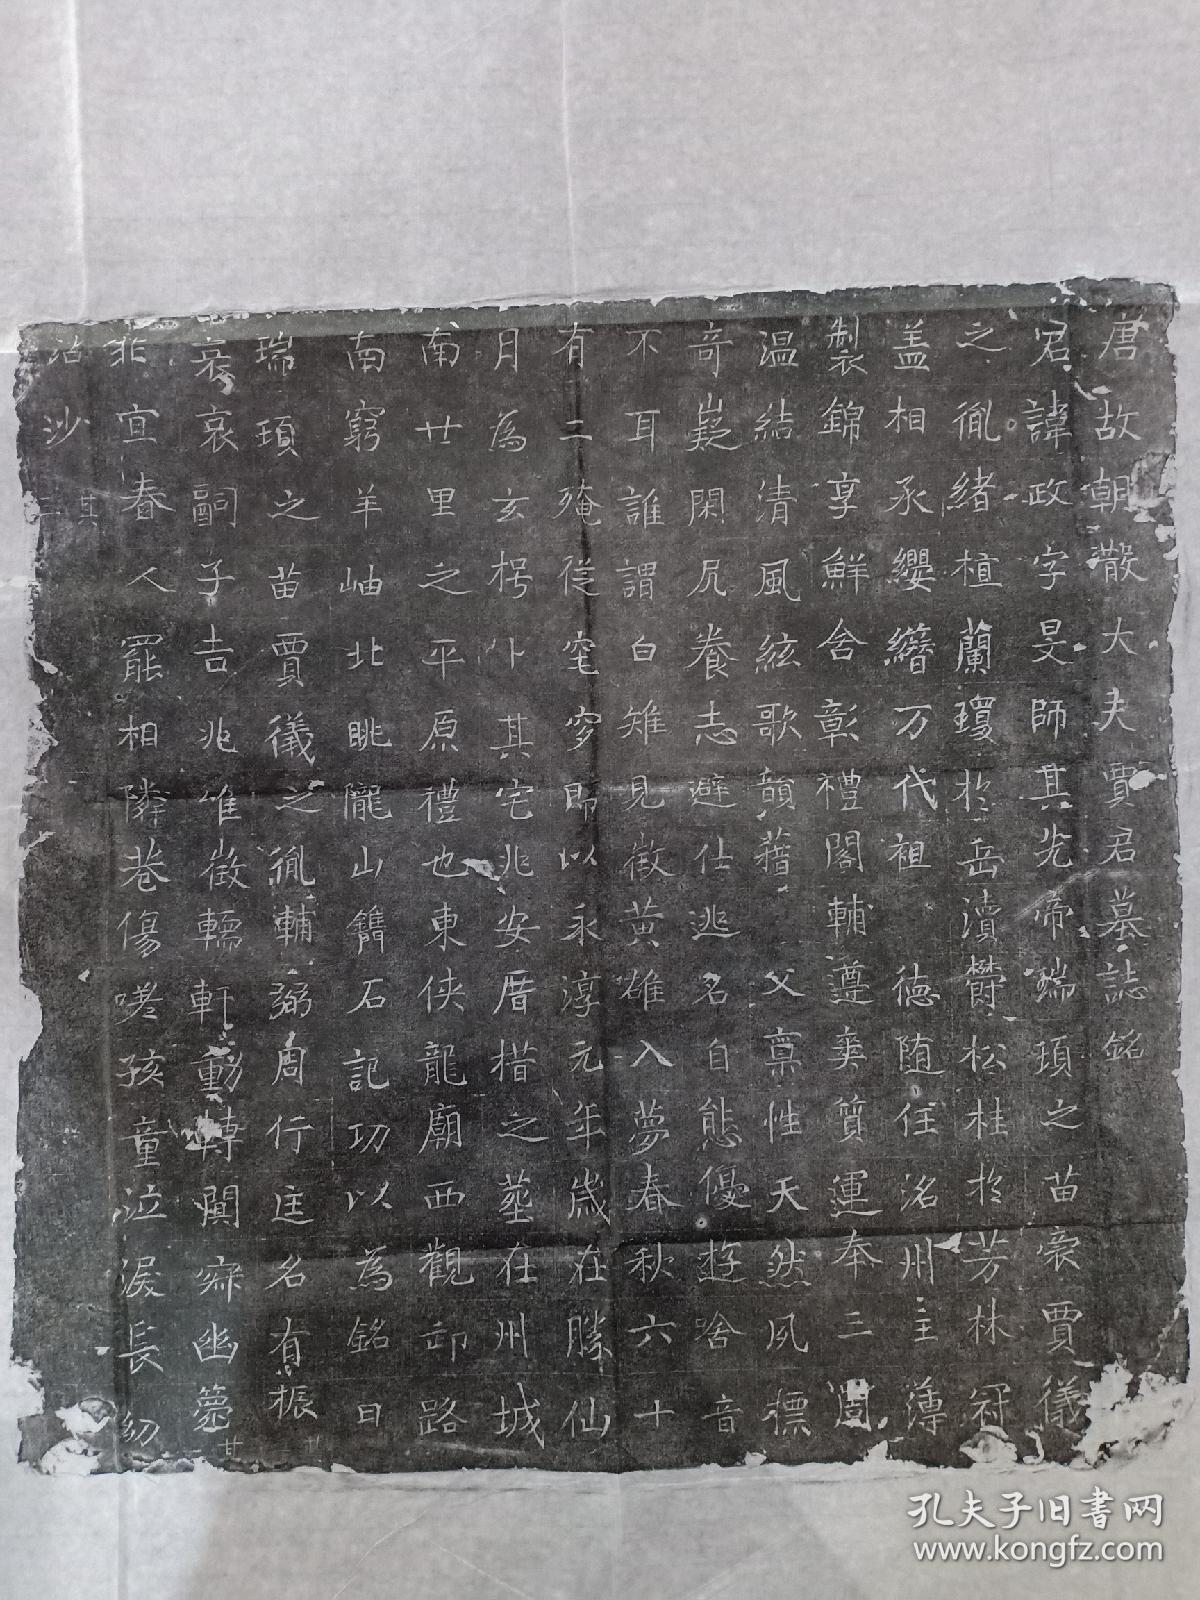 唐故朝散大夫賈君墓誌銘
君諱政字旻師其先帝端頊之苗裔賈儀
之胤緒植蘭瓊於岳瀆欝松桂於芳林冠
盖相承纓簪万代祖德随任洺州主簿
製錦享鮮含彰禮閣輔遵奕質運奉三
温結清風絃歌韻藉父禀性天然夙標
奇嶷閑居養志避仕逃名自態優遊啥音
不耳誰謂白雉見徴黄雄入夢春秋六十
有二殯從窀穸即以永淳元年歲在勝仙
月為玄枵卜其宅兆安厝措之塟在州城
南廿里之平原禮也東俠龍廟西觀卸路
南窮羊岫北眺隴山鐫石記功以為銘曰
瑞頊之苗賈儀之胤輔弼周行廷名有振
哀哀嗣子吉兆唯徴轜軒動轉闃寂幽
非宜春人罷相隣巷傷嗟孩童泣淚長幼
沾沙
其
二
廿
廿
孔夫子旧书网
www.kongfz.com